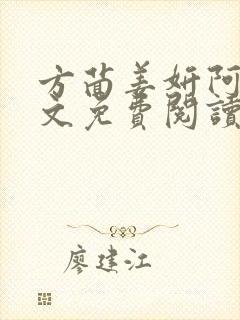 方茴姜妍阿
文免費閱讀
廖建江